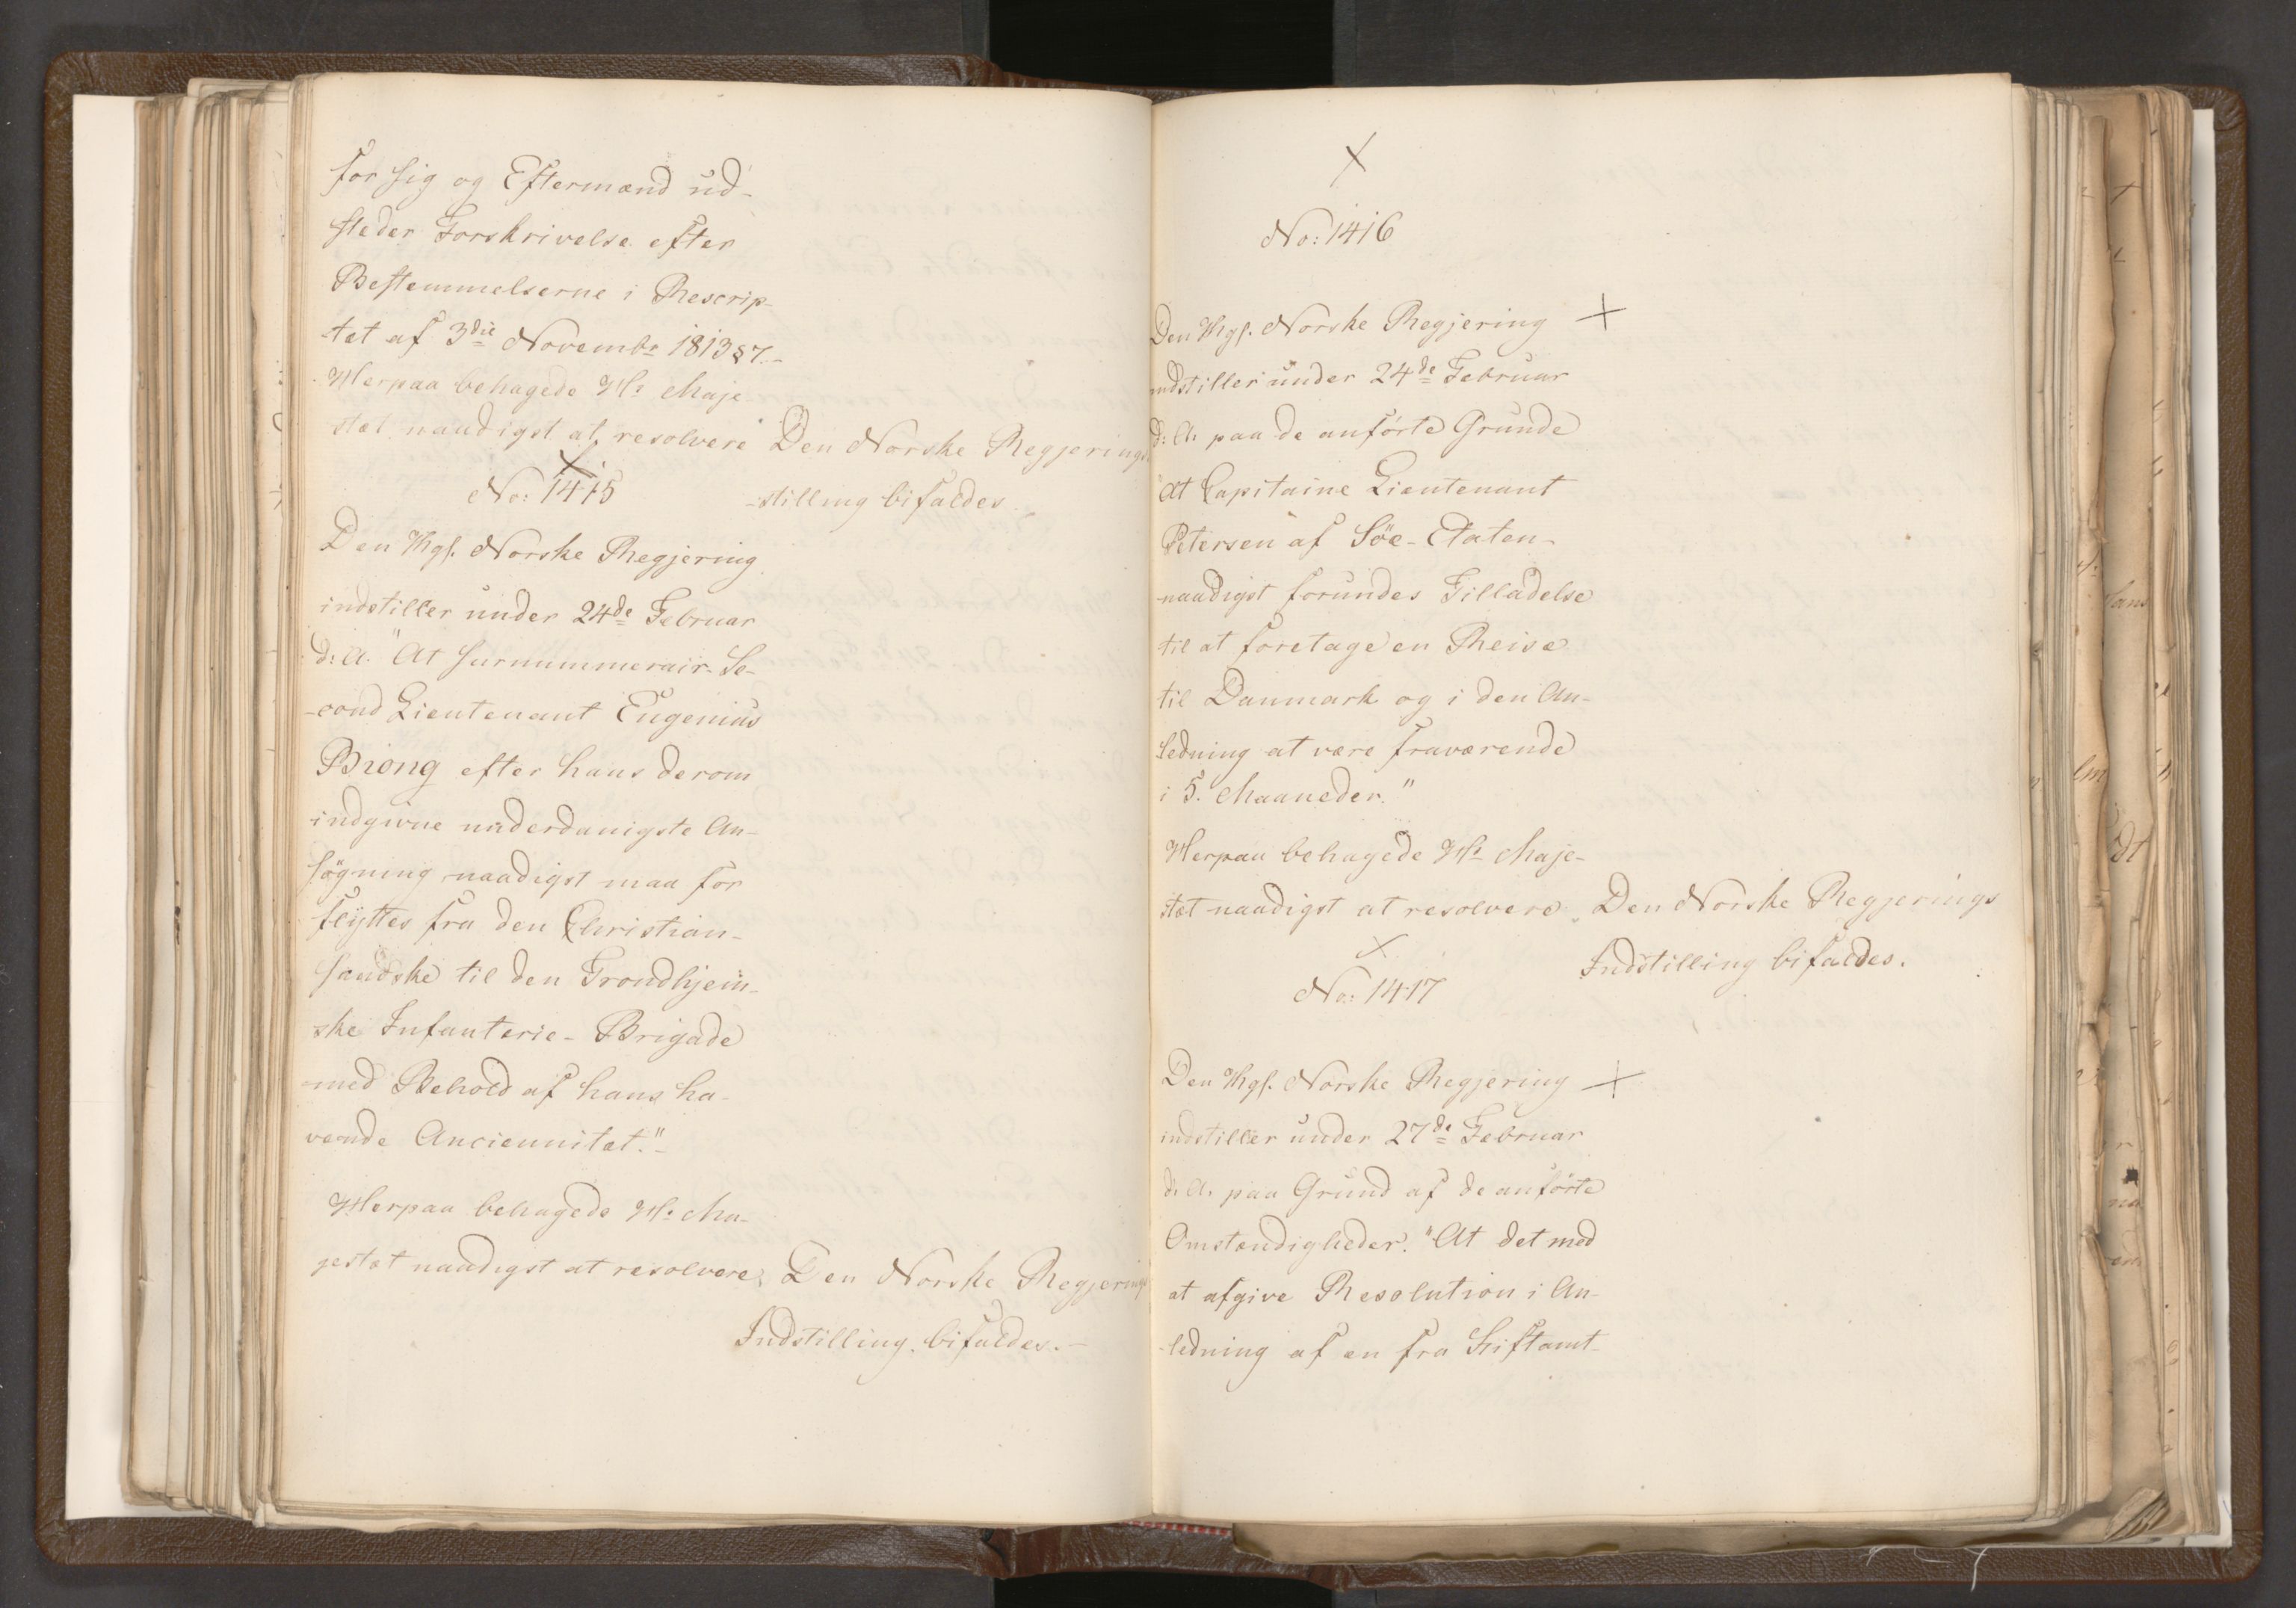 for sig og Eftermænd ud-
steder Forskrivelse efter
Bestemmelserne i Rescrip-
tet af 3die Novembr 1813 §7.-
Herpaa behagede Hs Maje
stæt naadigst at resolvere Den Norske Regjerings
-stilling bifaldes.
No: 1415
Den Kgl. Norske Regjering
indstiller under 24de Februar
d: A. "At surnummerair-Se-
-cond Lieutenant Eugenius
Biong efter hans derom
indgivne underdanigste An-
søgning naadigst maa for
flyttes fra den Christian-
sandske til den Trondhjem-
ske Infanterie-Brigade
med Behold af hans ha-
vende Anciennitæt."-
Herpaa behagede Hs Ma-
jestæt naadigst at resolvere Den Norske Regjerings
Indstilling bifaldes.-
No: 1416
Den Kgl. Norske Regjering
indstiller under 24de Februar
d: A: paa de anførte Grunde
"At Capitaine Lieutenant
Petersen af Søe-Etaten-
naadigst forundes Tilladelse
til at foretage en Reise
til Danmark og i den An-
ledning at være fraværende
i 5. Maaneder."
Herpaa behagede Hs Maje-
stæt naadigst at resolvere Den Norske Regjerings
Indstilling bifaldes.
No: 1417
Den Kgl. Norske Regjering
indstiller under 27de Februar
d: A. paa Grund af de anførte
Omstændigheder. "At det med
at afgive Resolution i An-
-ledning af en fra Stiftamt-